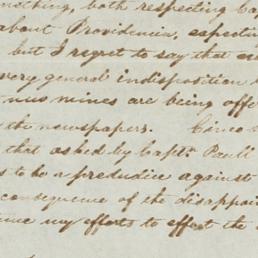 something, both respecting Ca
about Providencia, expecting
but I regret to say that
very general indisposition
new mines are being offe
the newspapers. Circu
that asked by Captn. Paull
to be a prejudice against
consequence of the disappoi
my efforts to effect the